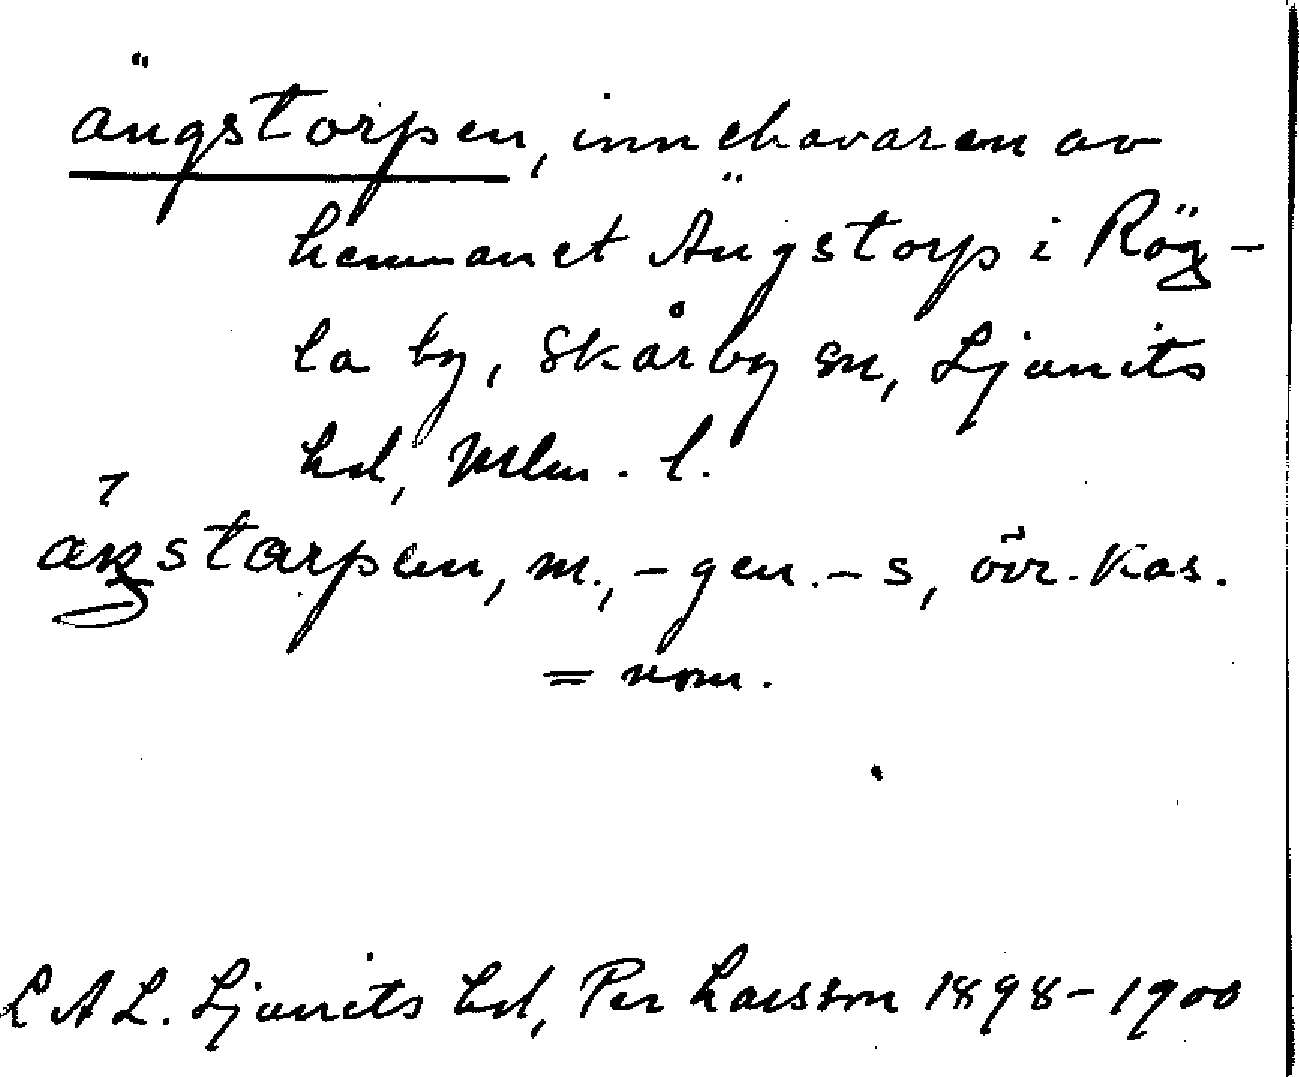 ängstorpen, innehavaren av
hemmanet Ängstorp i Rög-
la by, Skårby sn, Ljunits
hd, Mlm. l.
äŋstarpen, m., - gen. - s, övr. kas.
= nom.
L A L. Ljunits hd, Per Larsson 1898-1900